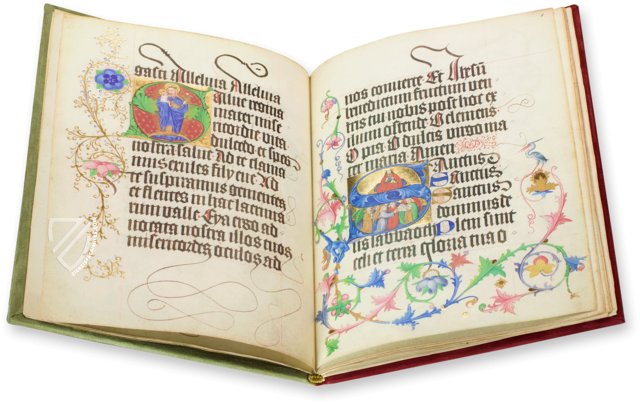 gasti Alleluia Alleluia
alue regina
mater mise
ricordie vita
dulcedo et spes
nostra salue Ad te clama
mus exules filij eue Ad
te suspiramus gementes
et flentes in hac lacrima
rum valle Eya ergo ad
uocata nostra illos tuos
misericordes oculos ad
nos conuerte Et Ihesum
benedictum fructum ven
tris tui nobis post hoc ex
ilium ostende O clemens
O pia O dulcis virgo ma
ria Amen
Sanctus
Sanctus
Sanctus
dominus de
us sabbaoth Pleni sunt
celi et terra gloria tua O